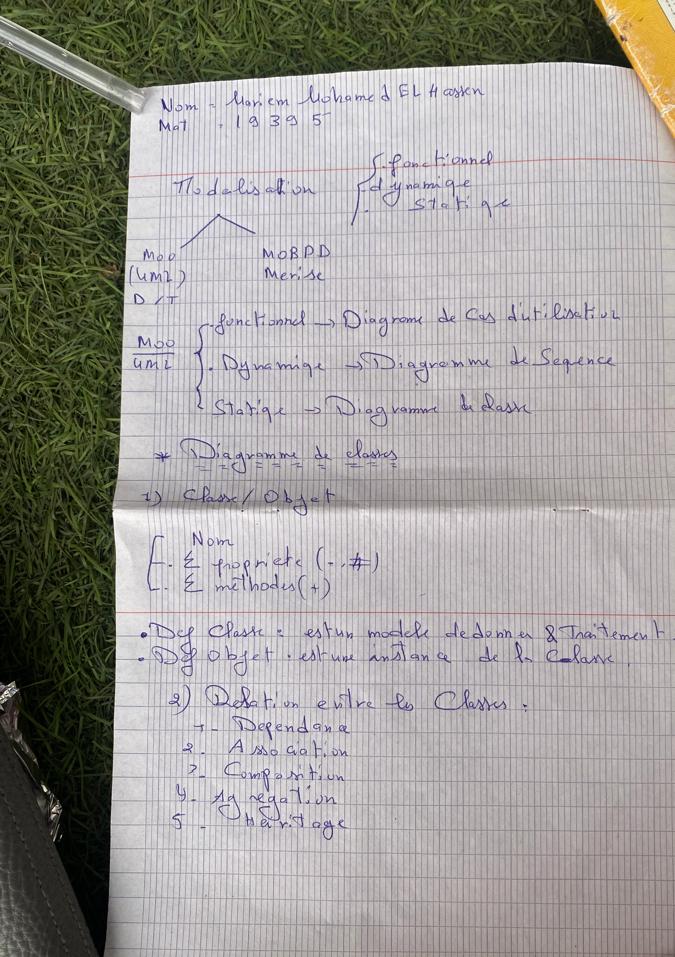 Nom - Mariem Mohamed EL Hassen
Mat : 19395
Modelisation { . fonctionnel
dynamiqe
. Statiqe
Moo MOBPD
(UML) Merise
D/T
Moo
UML
{ . fonctionnel → Diagrame de Cas d'utilisation
. Dynamiqe → Diagramme de Sequence
Statiqe → Diagramme de classe
* Diagramme de classes
1) Classe / Objet
Nom
. Σ propriete (-, #)
. Σ méthodes (+)
. Def Classe : est un modele de donner & Traitement
. Def objet : est une instance de la Classe,
2) Relation entre les Classes :
1- Dependance
2- Association
3- Composition
4- Agregation
5- Heritage